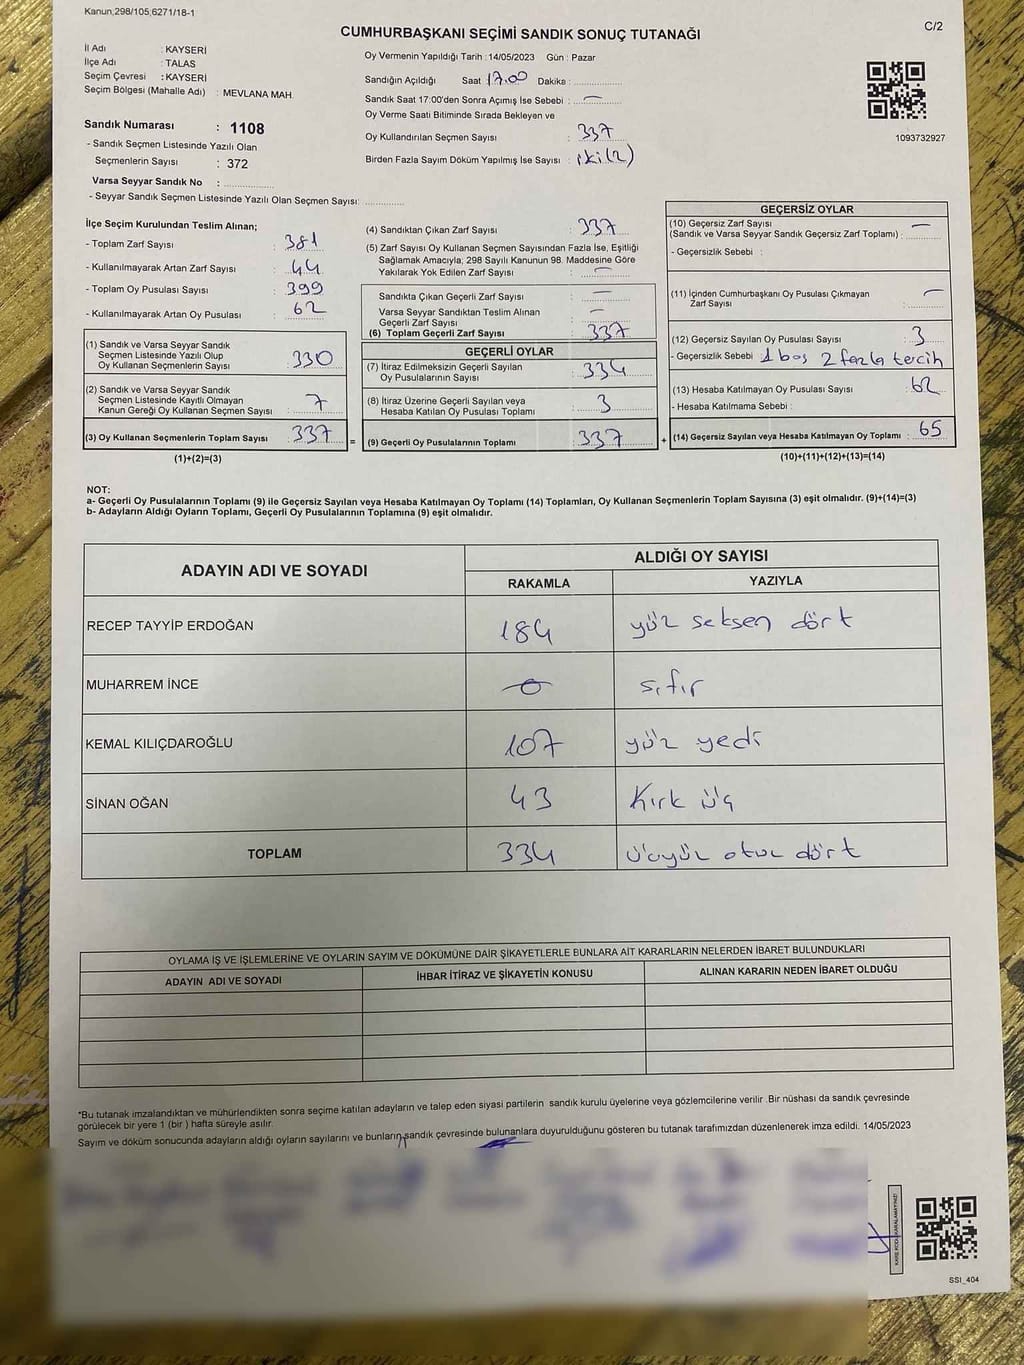 Kanun;298/105;6271/18-1
C/2
CUMHURBAŞKANI SEÇİMİ SANDIK SONUÇ TUTANAĞI
İl Adı : KAYSERİ
İlçe Adı : TALAS
Seçim Çevresi : KAYSERİ
Seçim Bölgesi (Mahalle Adı) : MEVLANA MAH.
Sandık Numarası : 1108
- Sandık Seçmen Listesinde Yazılı Olan
Seçmenlerin Sayısı : 372
Varsa Seyyar Sandık No : ..............
- Seyyar Sandık Seçmen Listesinde Yazılı Olan Seçmen Sayısı: ............
Oy Vermenin Yapıldığı Tarih : 14/05/2023 Gün : Pazar
Sandığın Açıldığı Saat 17.00 Dakika : ..............
Sandık Saat 17:00'den Sonra Açımış İse Sebebi : —
Oy Verme Saati Bitiminde Sırada Bekleyen ve
Oy Kullandırılan Seçmen Sayısı : 337
Birden Fazla Sayım Döküm Yapılmış İse Sayısı : iki(2)
1093732927
İlçe Seçim Kurulundan Teslim Alınan;
- Toplam Zarf Sayısı : 381
- Kullanılmayarak Artan Zarf Sayısı : 44
- Toplam Oy Pusulası Sayısı : 399
- Kullanılmayarak Artan Oy Pusulası : 62
(1) Sandık ve Varsa Seyyar Sandık
Seçmen Listesinde Yazılı Olup
Oy Kullanan Seçmenlerin Sayısı : 330
(2) Sandık ve Varsa Seyyar Sandık
Seçmen Listesinde Kayıtlı Olmayan
Kanun Gereği Oy Kullanan Seçmen Sayısı : 7
(3) Oy Kullanan Seçmenlerin Toplam Sayısı : 337 =
(1)+(2)=(3)
(4) Sandıktan Çıkan Zarf Sayısı : 337
(5) Zarf Sayısı Oy Kullanan Seçmen Sayısından Fazla İse, Eşitliği
Sağlamak Amacıyla; 298 Sayılı Kanunun 98. Maddesine Göre
Yakılarak Yok Edilen Zarf Sayısı : —
Sandıkta Çıkan Geçerli Zarf Sayısı : —
Varsa Seyyar Sandıktan Teslim Alınan
Geçerli Zarf Sayısı : —
(6) Toplam Geçerli Zarf Sayısı : 337
GEÇERLİ OYLAR
(7) İtiraz Edilmeksizin Geçerli Sayılan
Oy Pusulalarının Sayısı : 334
(8) İtiraz Üzerine Geçerli Sayılan veya
Hesaba Katılan Oy Pusulası Toplamı : 3
(9) Geçerli Oy Pusulalarının Toplamı : 337 +
GEÇERSİZ OYLAR
(10) Geçersiz Zarf Sayısı
(Sandık ve Varsa Seyyar Sandık Geçersiz Zarf Toplamı) : —
- Geçersizlik Sebebi :
(11) İçinden Cumhurbaşkanı Oy Pusulası Çıkmayan
Zarf Sayısı : —
(12) Geçersiz Sayılan Oy Pusulası Sayısı : 3
- Geçersizlik Sebebi : 1 boş 2 fazla tercih
(13) Hesaba Katılmayan Oy Pusulası Sayısı : 62
- Hesaba Katılmama Sebebi :
(14) Geçersiz Sayılan veya Hesaba Katılmayan Oy Toplamı : 65
(10)+(11)+(12)+(13)=(14)
NOT:
a- Geçerli Oy Pusulalarının Toplamı (9) ile Geçersiz Sayılan veya Hesaba Katılmayan Oy Toplamı (14) Toplamları, Oy Kullanan Seçmenlerin Toplam Sayısına (3) eşit olmalıdır. (9)+(14)=(3)
b- Adayların Aldığı Oyların Toplamı, Geçerli Oy Pusulalarının Toplamına (9) eşit olmalıdır.
ADAYIN ADI VE SOYADI ALDIĞI OY SAYISI
RAKAMLA YAZIYLA
RECEP TAYYİP ERDOĞAN 184 yüz seksen dört
MUHARREM İNCE 0 sıfır
KEMAL KILIÇDAROĞLU 107 yüz yedi
SİNAN OĞAN 43 Kırk üç
TOPLAM 334 üçyüz otuz dört
OYLAMA İŞ VE İŞLEMLERİNE VE OYLARIN SAYIM VE DÖKÜMÜNE DAİR ŞİKAYETLERLE BUNLARA AİT KARARLARIN NELERDEN İBARET BULUNDUKLARI
ADAYIN ADI VE SOYADI İHBAR İTİRAZ VE ŞİKAYETİN KONUSU ALINAN KARARIN NEDEN İBARET OLDUĞU
*Bu tutanak imzalandıktan ve mühürlendikten sonra seçime katılan adayların ve talep eden siyasi partilerin sandık kurulu üyelerine veya gözlemcilerine verilir .Bir nüshası da sandık çevresinde
görülecek bir yere 1 (bir ) hafta süreyle asılır.
Sayım ve döküm sonucunda adayların aldığı oyların sayılarını ve bunların sandık çevresinde bulunanlara duyurulduğunu gösteren bu tutanak tarafımızdan düzenlenerek imza edildi. 14/05/2023
KARE KODU KARALAMAYINIZ!
SSI_404